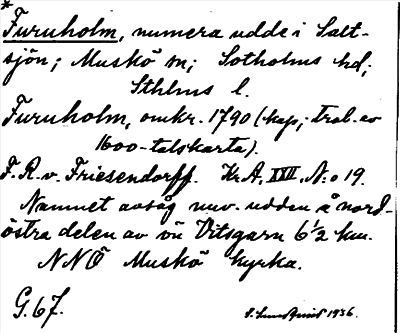 *
Furuholm, numera udde i Salt-
sjön; Muskö sn; Sotholms hd;
Sthlms l.
Furuholm, omkr. 1790 (kop; trol. av
1600-talskarta).
F. R. v. Friesendorff. Kr. A, XXII, N:o 19.
Namnet avsåg nuv. udden å nord-
östra delen av ön Vitsgarn 6½ km.
NNÖ Muskö kyrka.
G. 67.
1936.